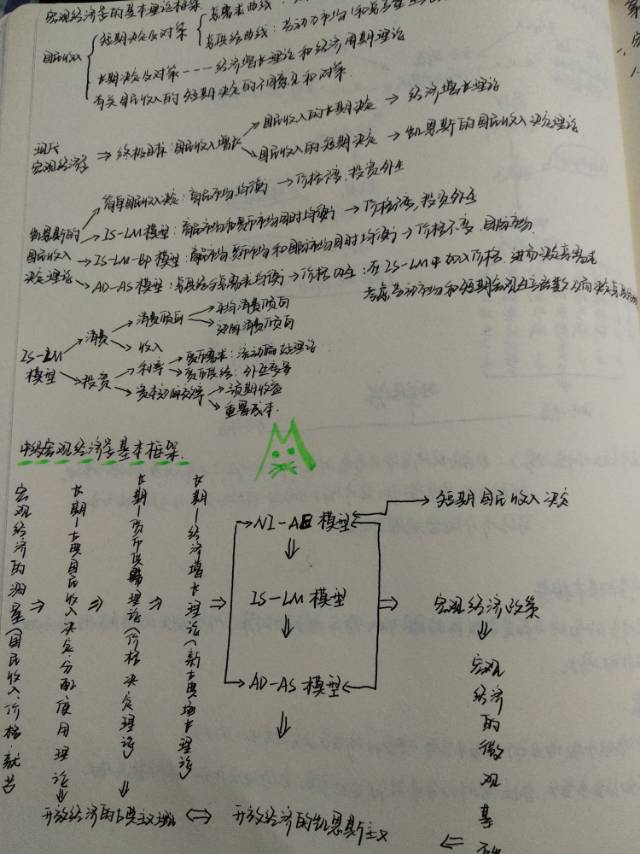 宏观经济学的基本理论框架
国民收入
短期决定及对策
总需求曲线:
总供给曲线:劳动力市场和
长期决定及对策----经济增长理论和经济周期理论
有关国民收入的短期决定的不同意见和对策.
现代宏观经济学 → 终极目标:国民收入增长
国民收入的长期决定 → 经济增长理论
国民收入的短期决定 → 凯恩斯的国民收入决定理论
凯恩斯的国民收入决定理论
简单国民收入决定:商品市场均衡 → 价格不变,投资外生
IS-LM模型:商品市场和货币市场同时均衡 → 价格不变,投资外生
IS-LM-BP模型:商品市场、货币市场和国际市场同时均衡 → 价格不变、国际市场.
AD-AS模型:总供给与总需求均衡 → 价格内生:在IS-LM中加入价格,进而决定总需求
考虑劳动市场和短期宏观生产函数,从而决定总
IS-LM模型
消费
消费倾向
平均消费倾向
边际消费倾向
收入
投资
利率
货币需求:流动偏好理论
货币供给:外生变量
资本边际效率
预期收益
重置成本.
中级宏观经济学基本框架.
宏观经济的测量(国民收入、价格、就业
⇒ 长期—古典国民收入决定分配使用理论
⇒ 长期—货币供需理论(价格决定理论)
⇒ 长期—经济增长理论(新古典增长理论)
⇒ NI-AE模型 → 短期国民收入决定
⇓
IS-LM模型 ⇒ 宏观经济政策
⇓
AD-AS模型
⇓
宏观经济的微观基础
开放经济的古典主义 ⇔ 开放经济的凯恩斯主义 ⇐